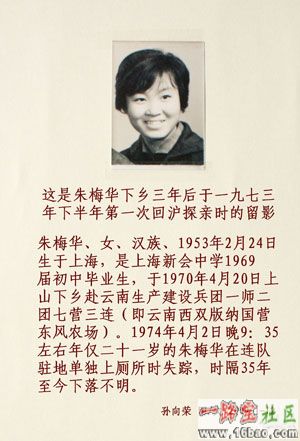 这是朱梅华下乡三年后于一九七三
年下半年第一次回沪探亲时的留影
朱梅华、女、汉族、1953年2月24日
生于上海，是上海新会中学1969
届初中毕业生，于1970年4月20日上
山下乡赴云南生产建设兵团一师二
团七营三连（即云南西双版纳国营
东风农场）。1974年4月2日晚9：35
左右年仅二十一岁的朱梅华在连队
驻地单独上厕所时失踪，时隔35年
至今下落不明。
孙向荣
路宝社区
www.16bao.com